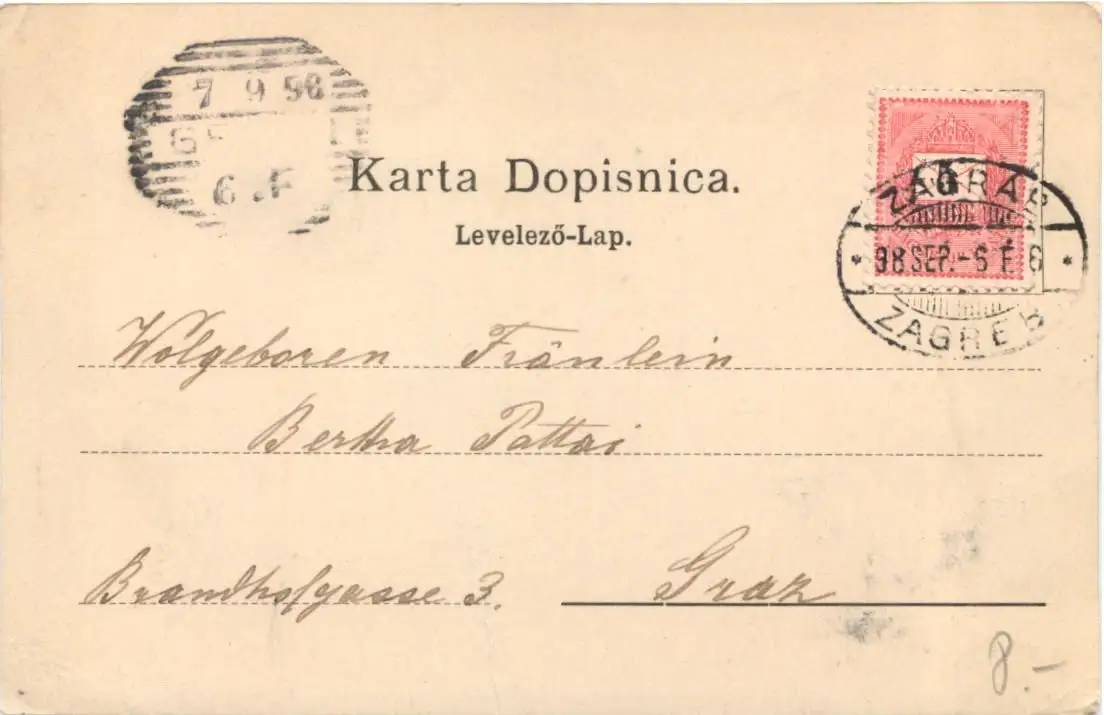 7 9 98
6.F
Karta Dopisnica.
Levelező-Lap.
ZÁGRÁB
98 SEP.-6 E 6
ZAGREB
Wolgeboren Fränlein
Bertha Pattai
Brandhofgasse 3.
Graz
8.-